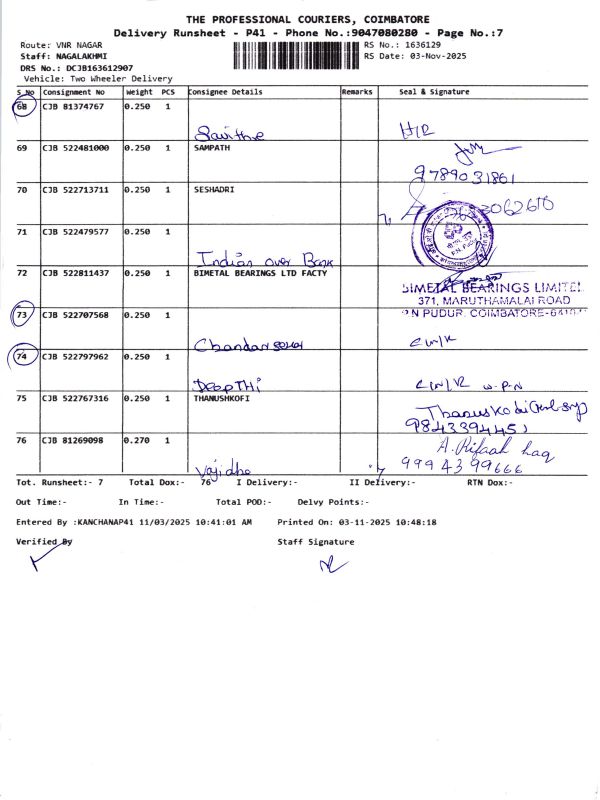 THE PROFESSIONAL COURIERS, COIMBATORE
Delivery Runsheet - P41 - Phone No.:9047080280 - Page No.:7
Route: VNR NAGAR
RS No.: 1636129
Staff: NAGALAKHMI
RS Date: 03-Nov-2025
DRS No.: DCJB163612907
Vehicle: Two Wheeler Delivery
S No Consignment No Weight PCS Consignee Details Remarks Seal & Signature
68 CJB 81374767 0.250 1
Savithe H/R
69 CJB 522481000 0.250 1 SAMPATH
9789031861
70 CJB 522713711 0.250 1 SESHADRI
71 CJB 522479577 0.250 1
Indian over Bank
72 CJB 522811437 0.250 1 BIMETAL BEARINGS LTD FACTY
BIMETAL BEARINGS LIMITED
371, MARUTHAMALAI ROAD
P N PUDUR, COIMBATORE-641041
73 CJB 522707568 0.250 1
74 CJB 522797962 0.250 1
DeepTHi
75 CJB 522767316 0.250 1 THANUSHKOFI
9843394451
76 CJB 81269098 0.270 1
A. Rifaah haq
Vajidhe 9994399666
Tot. Runsheet:- 7 Total Dox:- 76 I Delivery:- II Delivery:- RTN Dox:-
Out Time:- In Time:- Total POD:- Delvy Points:-
Entered By :KANCHANAP41 11/03/2025 10:41:01 AM Printed On: 03-11-2025 10:48:18
Verified By Staff Signature